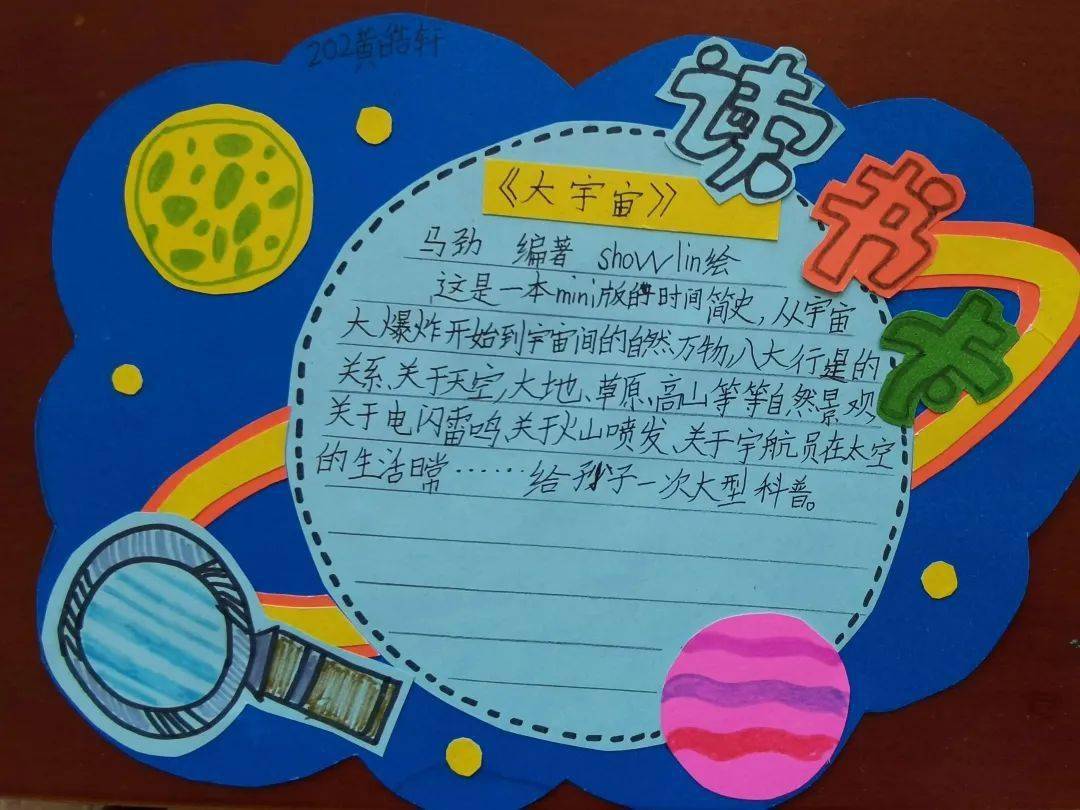 202黄皓轩
读书卡
《大宇宙》
马劲 编著 show lin绘
这是一本mini版的时间简史，从宇宙
大爆炸开始到宇宙间的自然万物，八大行星的
关系、关于天空，大地、草原、高山等等自然景观
关于电闪雷鸣、关于火山喷发、关于宇航员在太空
的生活日常……给孩子一次大型科普。